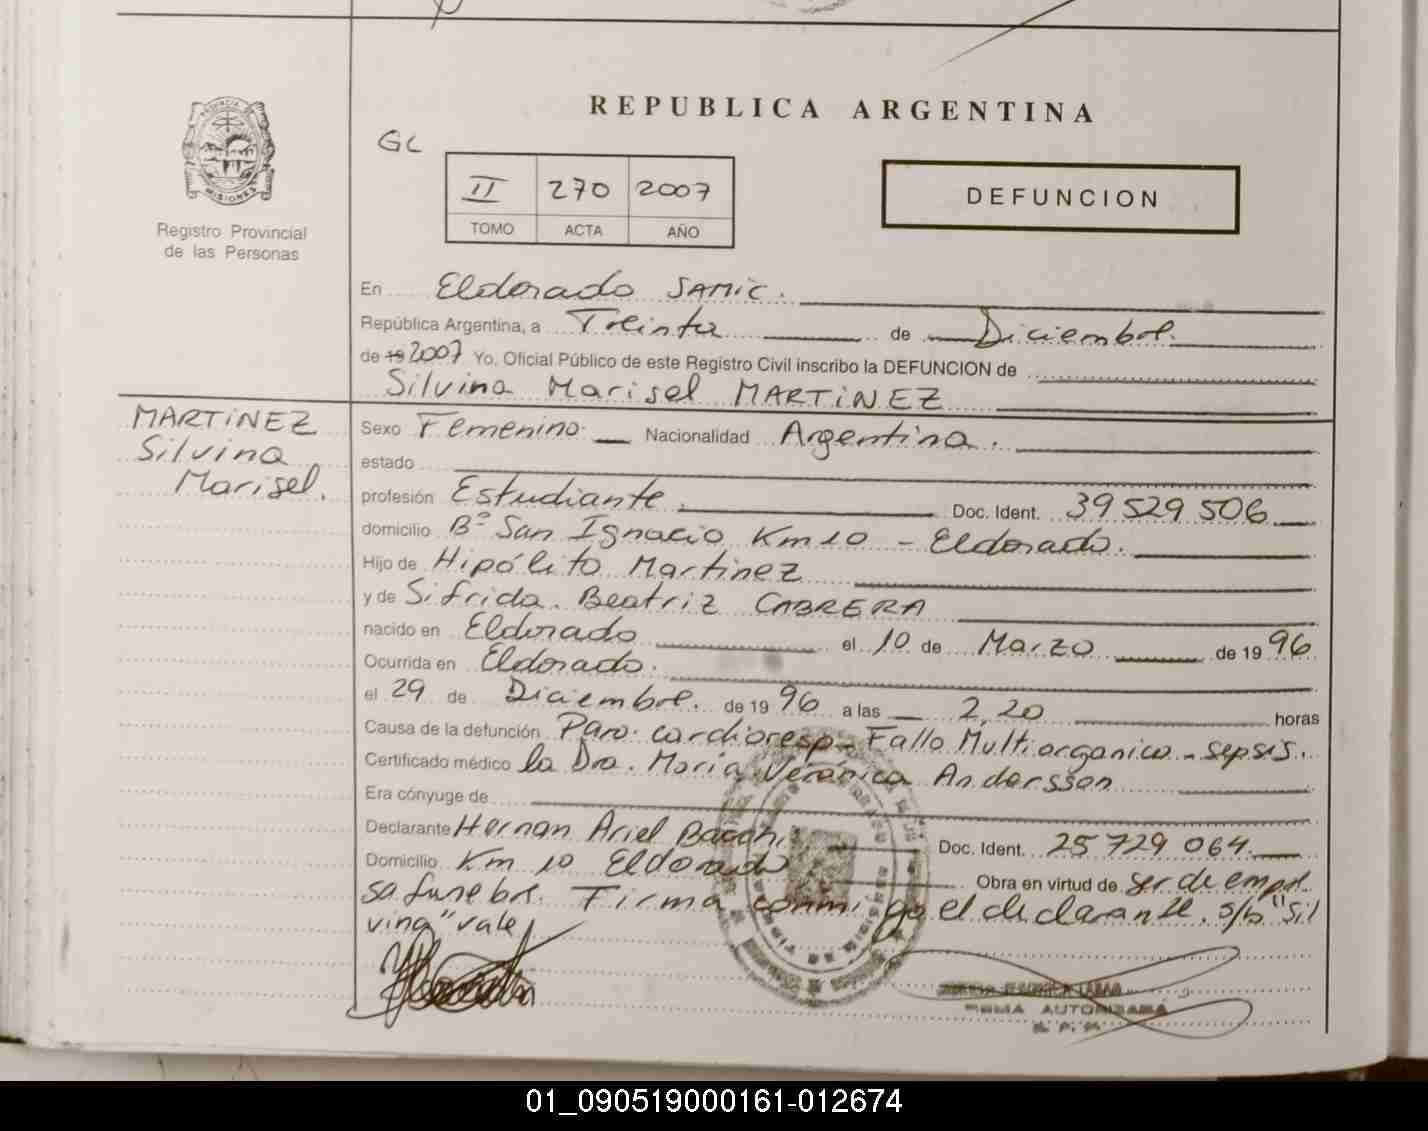 REPUBLICA ARGENTINA
GL
II 270 2007
TOMO ACTA AÑO
DEFUNCION
MISIONES
Registro Provincial
de las Personas
En Eldorado SAMIC.
República Argentina, a Treinta de Diciembre.
de 19 2007 Yo, Oficial Público de este Registro Civil inscribo la DEFUNCION de
Silvina Marisel MARTINEZ
MARTINEZ
Silvina
Marisel.
Sexo Femenino Nacionalidad Argentina.
estado
profesión Estudiante. Doc. Ident. 39529506
domicilio Bº San Ignacio Km 10 - Eldorado.
Hijo de Hipólito Martinez
y de Sifrida. Beatriz CABRERA
nacido en Eldorado el 10 de Marzo de 19 96
Ocurrida en Eldorado.
el 29 de Diciembre. de 19 96 a las 2,20 horas
Causa de la defunción Paro. cardioresp - Fallo Multiorganico - sepsis.
Certificado médico la Dra. María Verónica Andersson
Era cónyuge de
Declarante Hernan Ariel Doc. Ident. 25729064.
Domicilio Km 10 Eldorado Obra en virtud de ser de empre
sa funebre. Firma conmigo el declarante. s/b "Sil
vina" vale
FIRMA AUTORIZADA
R. P. P.
01_090519000161-012674